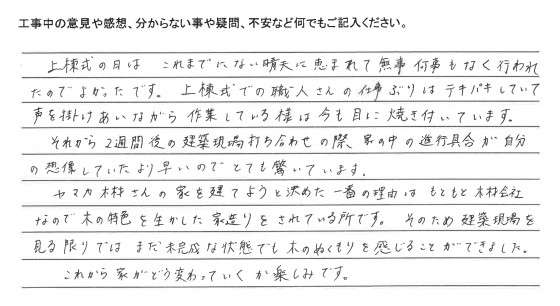 工事中の意見や感想、分からない事や疑問、不安など何でもご記入ください。
上棟式の日は これまでにない晴天に恵まれて無事何事もなく行われ
たのでよかったです。上棟式での職人さんの仕事ぶりはテキパキしていて
声を掛けあいながら作業している様は今も目に焼き付いています。
それから2週間後の建築現場打ち合わせの際、家の中の進行具合が自分
の想像していたより早いのでとても驚いています。
ヤマカ木材さんの家を建てようと決めた一番の理由はもともと木材会社
なので木の特色を生かした家造りをされている所です。そのため建築現場を
見る限りでは まだ未完成な状態でも木のぬくもりを感じることができました。
これから家がどう変わっていくか楽しみです。